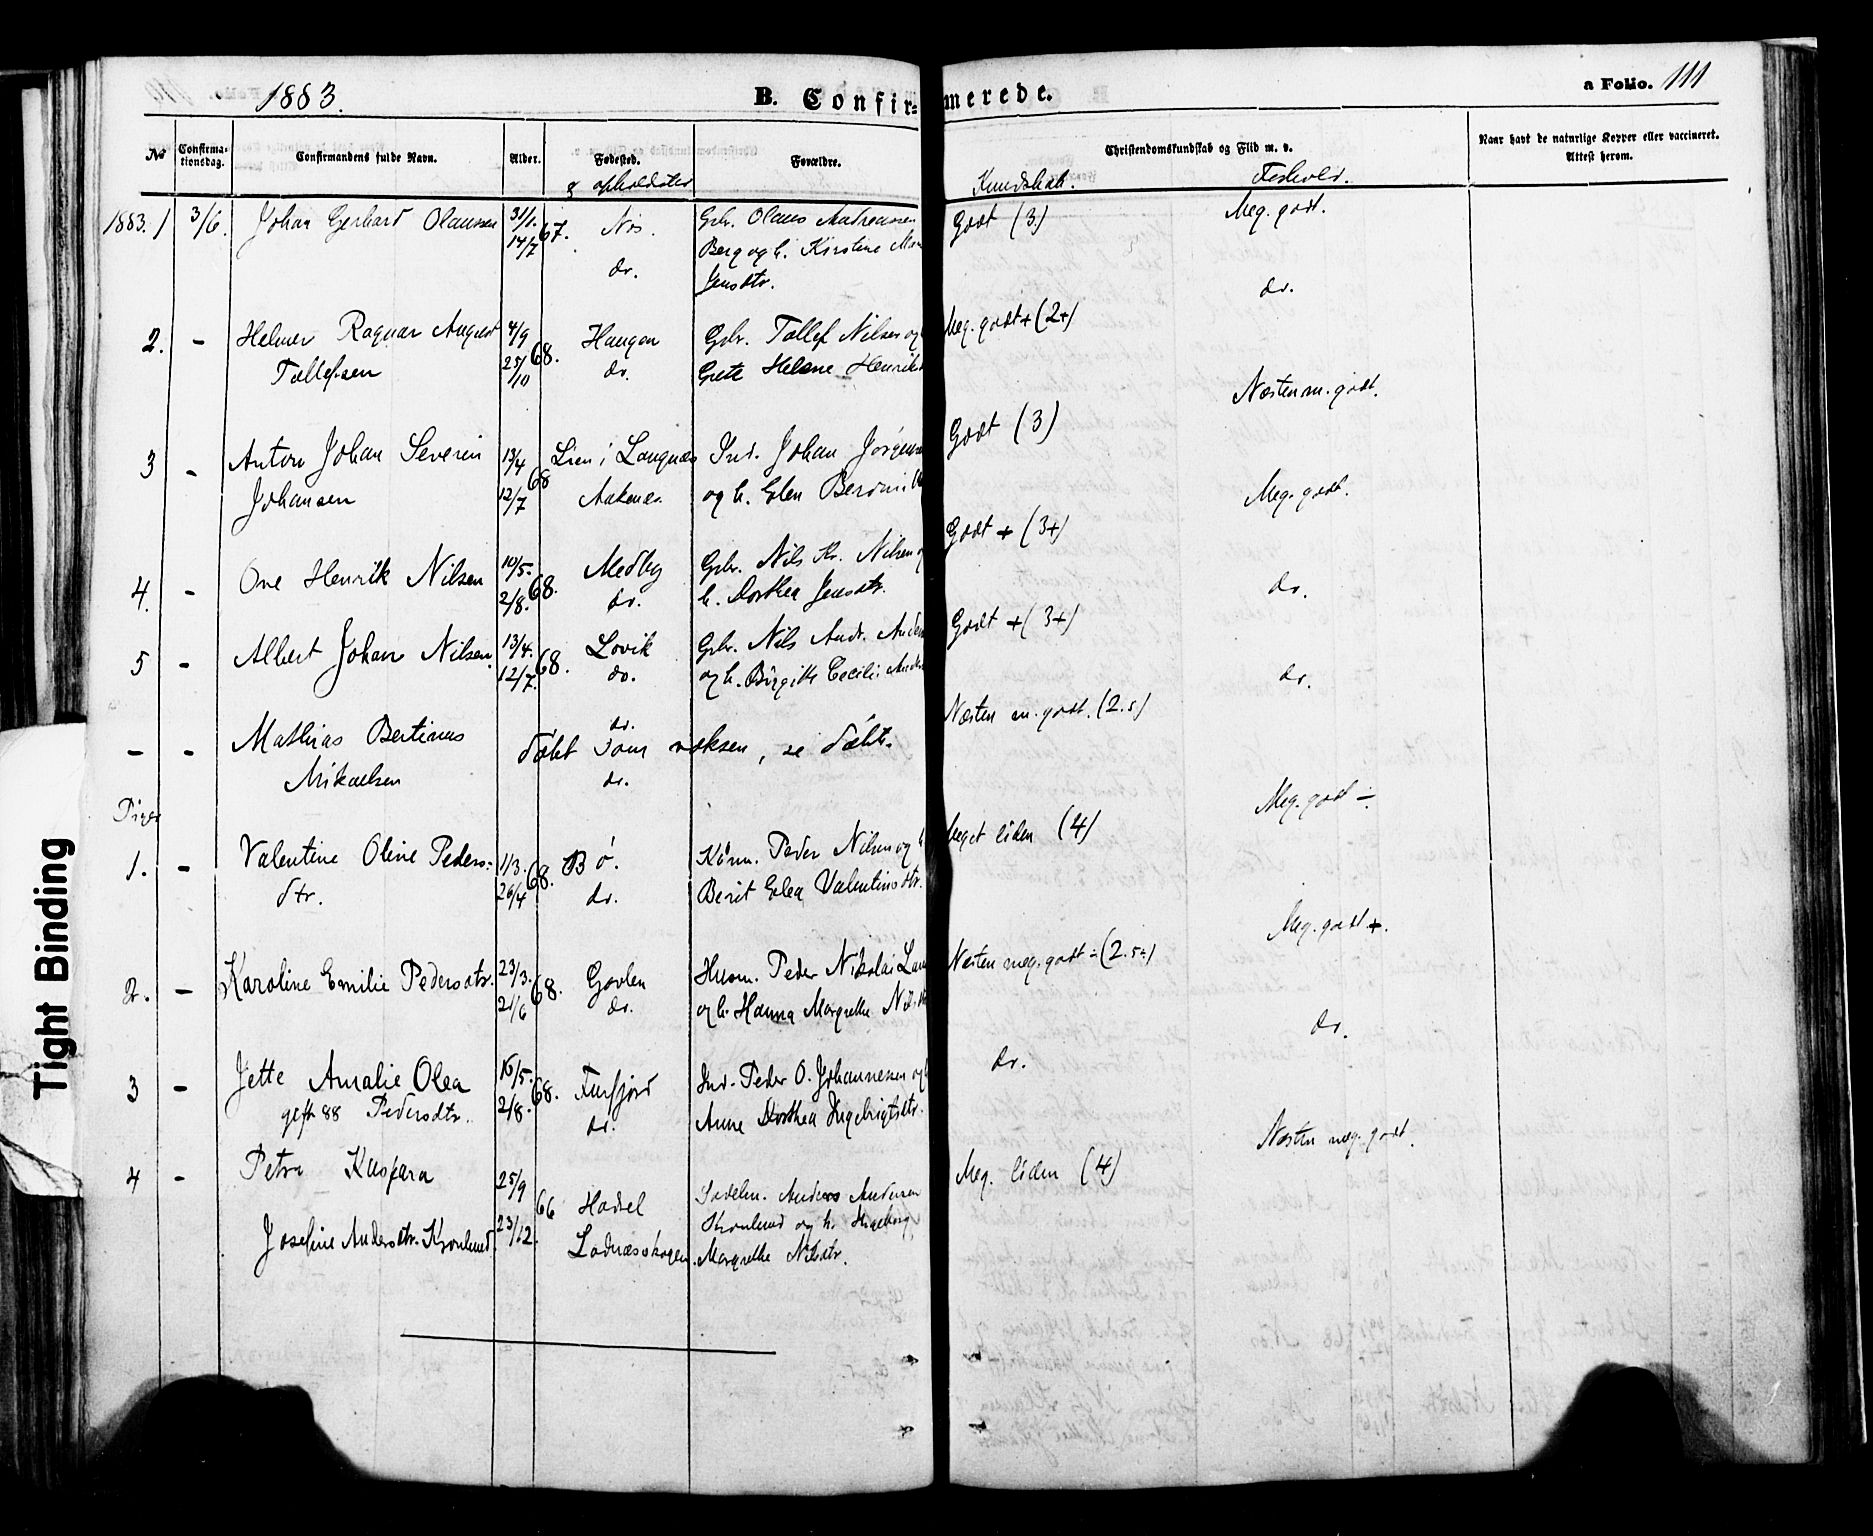 1883.
B. Confir-
merede.
a Folio. 111
No
Confirma-
tionsdag.
Confirmandens fulde Navn.
Alder.
Fødested.
& opholdsted
Forældre.
Christendomskundskab og Flid m. v.
Kundskab. Forhold.
Naar havt de naturlige Kopper eller vaccineret.
Attest herom.
1883. 1 3/6. Johan Gerhard Olaussen 31/1. 14/7 67. Nøs. do.
Gbr. Olaus Andreassen
Berg og h. Kirstine
Jensdtr.
Godt (3) Meg. godt.
2. - Helmer Ragnar August
Tollefsen
4/9 25/10 68. Haugen do.
Gbr. Tollef Nilsen og
Grete Helene Henriks
Meg. godt + (2+) do.
3 - Anton Johan Severin
Johansen
13/4 12/7 68 Lien i Langnæs
Aakenes.
Ind. Johan Jørgensen
og h. Elen Berdini
Godt (3) Næsten m. godt.
4. - Ove Henrik Nilsen 10/5. 2/8. 68. Medby do.
Gbr. Nils Kr. Nilsen
h. Dorthea Jensdtr.
Godt + (3+) Meg. godt.
5 - Albert Johan Nilsen. 13/4. 12/7. 68. Lovik do.
Gbr. Nils Andr. Anders
og h. Birgitte Cecilie Anders
Godt + (3+) do.
- - Mathias Bertinus
Mikaelsen
do.
døbt som voksen, se døbte.
do.
Næsten m. godt. (2.5) do.
Piger
1. - Valentine Oline Peders-
dtr.
1/3. 26/4 68. Bø. do.
Kårm. Peder Nilsen og
Berit Elea Valentinsdtr.
Meget liden (4) Meg. godt ÷.
2. - Karoline Emilie Pedersdtr. 23/3. 21/6 68. Gavlen do.
Husm. Peder Nikolai
og h. Hanna Margrethe
Næsten meg. godt ÷ (2.5÷) Meg. godt +.
3 - Jette Amalie Olea
gift 88 Pedersdtr.
16/5. 2/8. 68. Finfjord do.
Ind. Peder O. Johannesen og
Anne Dorthea Ingebrigtsdtr.
do. do.
4 - Petra Kaspara
Josefine Andersdtr. Kronlund
25/9 23/12. 66 Hadsel
Ladnæsskogen.
Sadelm. Anders Andersen
Kronlund og h. Ingeborg
Margrethe Nilsdtr.
Meg. liden (4) Næsten meg. godt.
Tight Binding